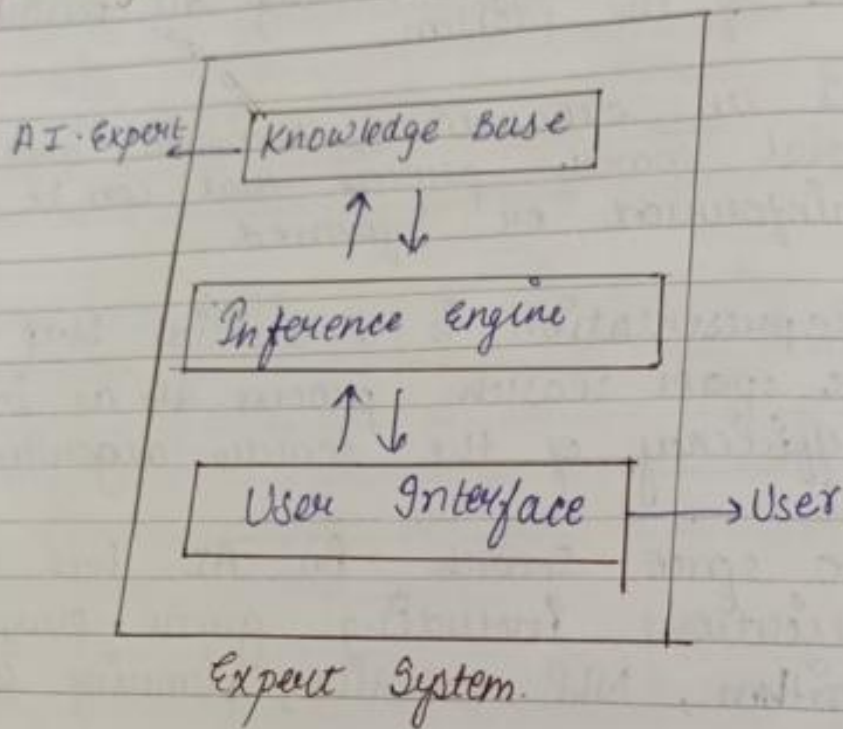 AI. Expert
Knowledge Base
Inference Engine
User Interface
User
Expert System.